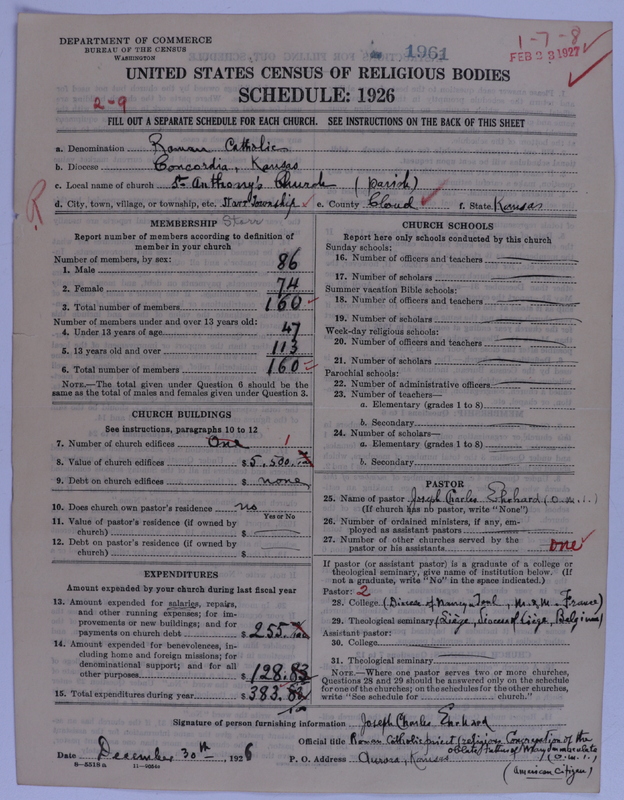 DEPARTMENT OF COMMERCE
BUREAU OF THE CENSUS
WASHINGTON
1961
1-7-8
FEB 23 1927
UNITED STATES CENSUS OF RELIGIOUS BODIES
SCHEDULE: 1926
2-9
FILL OUT A SEPARATE SCHEDULE FOR EACH CHURCH. SEE INSTRUCTIONS ON THE BACK OF THIS SHEET
a. Denomination Roman Catholic
b. Diocese Concordia, Kansas
c. Local name of church St Anthony's Church (parish)
d. City, town, village, or township, etc. Starr Township e. County Cloud f. State Kansas
R
MEMBERSHIP Starr
Report number of members according to definition of
member in your church
Number of members, by sex:
1. Male 86
2. Female 74
3. Total number of members 160
Number of members under and over 13 years old:
4. Under 13 years of age 47
5. 13 years old and over 113
6. Total number of members 160
NOTE.—The total given under Question 6 should be the
same as the total of males and females given under Question 3.
CHURCH BUILDINGS
See instructions, paragraphs 10 to 12
7. Number of church edifices One 1
8. Value of church edifices $5.500
9. Debt on church edifices $ none
10. Does church own pastor's residence no
Yes or No
11. Value of pastor's residence (if owned by
church) $
12. Debt on pastor's residence (if owned by
church) $
EXPENDITURES
Amount expended by your church during last fiscal year
13. Amount expended for salaries, repairs,
and other running expenses; for im-
provements or new buildings; and for
payments on church debt $255.
14. Amount expended for benevolences, in-
cluding home and foreign missions; for
denominational support; and for all
other purposes $128.83
15. Total expenditures during year $383.
CHURCH SCHOOLS
Report here only schools conducted by this church
Sunday schools:
16. Number of officers and teachers
17. Number of scholars
Summer vacation Bible schools:
18. Number of officers and teachers
19. Number of scholars
Week-day religious schools:
20. Number of officers and teachers
21. Number of scholars
Parochial schools:
22. Number of administrative officers
23. Number of teachers—
a. Elementary (grades 1 to 8)
b. Secondary
24. Number of scholars—
a. Elementary (grades 1 to 8)
b. Secondary
PASTOR
25. Name of pastor Joseph Charles Ehrhard (O.M.I.)
(If church has no pastor, write "None")
26. Number of ordained ministers, if any, em-
ployed as assistant pastors
27. Number of other churches served by the
pastor or his assistants one
If pastor (or assistant pastor) is a graduate of a college or
theological seminary, give name of institution below. (If
not a graduate, write "No" in the space indicated.)
Pastor: 2
28. College (Diocese of Nancy & Toul, M. & M. France)
29. Theological seminary (Liège, Diocese of Liège, Belgium)
Assistant pastor:
30. College
31. Theological seminary
NOTE.—Where one pastor serves two or more churches,
Questions 28 and 29 should be answered only on the schedule
for one of the churches; on the schedules for the other churches,
write "See schedule for church."
Signature of person furnishing information Joseph Charles Ehrhard
Official title Roman Catholic priest (religious Congregation of the
Oblate Fathers of Mary Immaculate
(O.M.I.)
Date December 30th, 1926 P. O. Address Aurora, Kansas
(American Citizen)
8—5518a